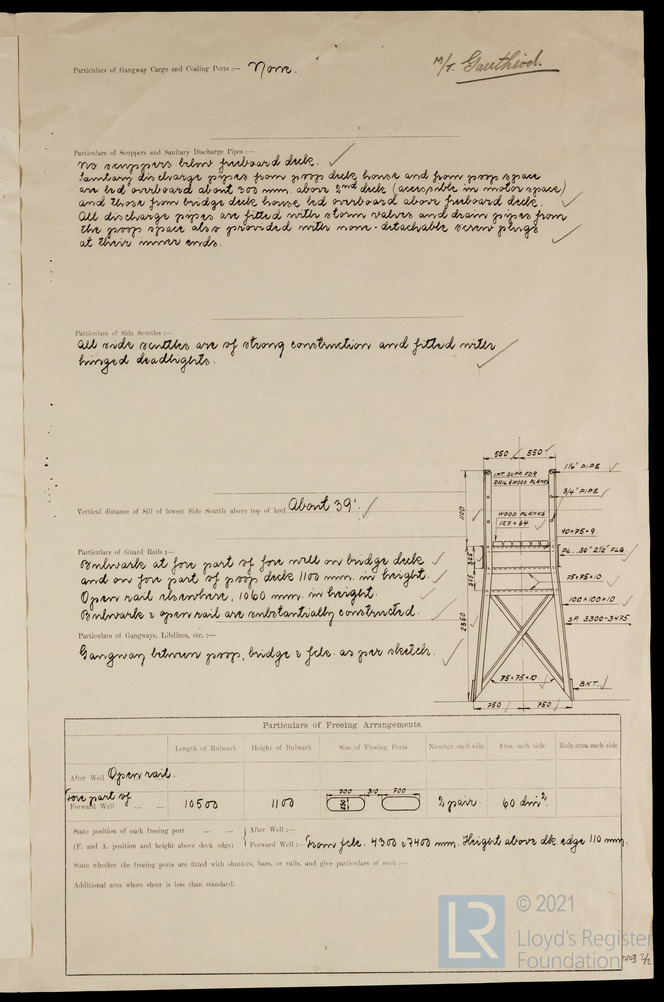 Particulars of Gangway Cargo and Coaling Ports :— None.
M/T. Gauthiod.
Particulars of Scuppers and Sanitary Discharge Pipes :—
No scuppers below freeboard deck.
Sanitary discharge pipes from poop deck house and from poop space
are led overboard about 300 mm. above 2nd deck (accessible in motor space)
and those from bridge deck house led overboard above freeboard deck.
All discharge pipes are fitted with storm valves and drain pipes from
the poop space also provided with none-detachable screw plugs
at their inner ends.
Particulars of Side Scuttles :—
All side scuttles are of strong construction and fitted with
hinged deadlights.
Vertical distance of Sill of lowest Side Scuttle above top of keel About 39'.
Particulars of Guard Rails :—
Bulwark at fore part of fore well on bridge deck
and on fore part of poop deck 1100 mm. in height.
Open rail elsewhere, 1060 mm. in height.
Bulwark & open rail are substantially constructed.
Particulars of Gangways, Lifelines, etc. :—
Gangway between poop, bridge & fcle. as per sketch.
550 550
INT. SUPP. FOR
RAIL & WOOD PLANKS
1¼" PIPE
3/4" PIPE
1100
WOOD PLANKS
127×64
90×75×9
PL. .30" 2½" FLG.
315
75×75×10
100×100×10
SP. 3300-3475
2350
75×75×10
BKT.
750 750
Particulars of Freeing Arrangements.
Length of Bulwark Height of Bulwark Size of Freeing Ports Number each side Area each side Rule area each side
After Well Open rail.
700 310 700
Fore part of
Forward Well ... ... 10500 1100 2 pair. 60 dm².
State position of each freeing port ... ... After Well :—
(F. and A. position and height above deck edge) Forward Well :— From fcle. 4300 & 7400 mm. Height above dk. edge 110 mm.
State whether the freeing ports are fitted with shutters, bars, or rails, and give particulars of such :—
Additional area where sheer is less than standard.
LR
© 2021
Lloyd's Register
Foundation
2/2